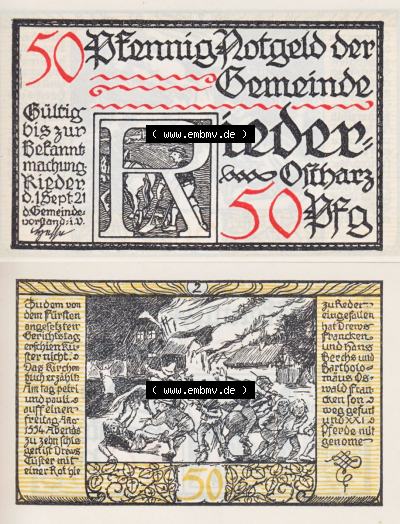 50 Pfennig Notgeld der
Gemeinde
Gültig
bis zur
Bekannt
machung:
Rieder
d. 1. Sept 21
d. Gemeinde-
vorstand: i. V.
Rieder-
Ostharz
50 Pfg
( www.embmv.de )
( www.embmv.de )
2
Zu dem von
dem Fürsten
angesetzten
Gerichtstag
erschien Kü
ster nicht.
Das Kirchen
buch erzählt
Am tag petri
und pauli
auff einen
freitag. Ao
1554 Abends
zu zehn schle
gert ist Drews
Cüster mit
einer Rothe
zu Reder
eingefallen
hat Drews
Francken
und Hans
Berchs und
Bartholo-
mäus Os-
wald Fran
cken son
weg gefurt
und XXI
Pferde mit
genome
50
( www.embmv.de )